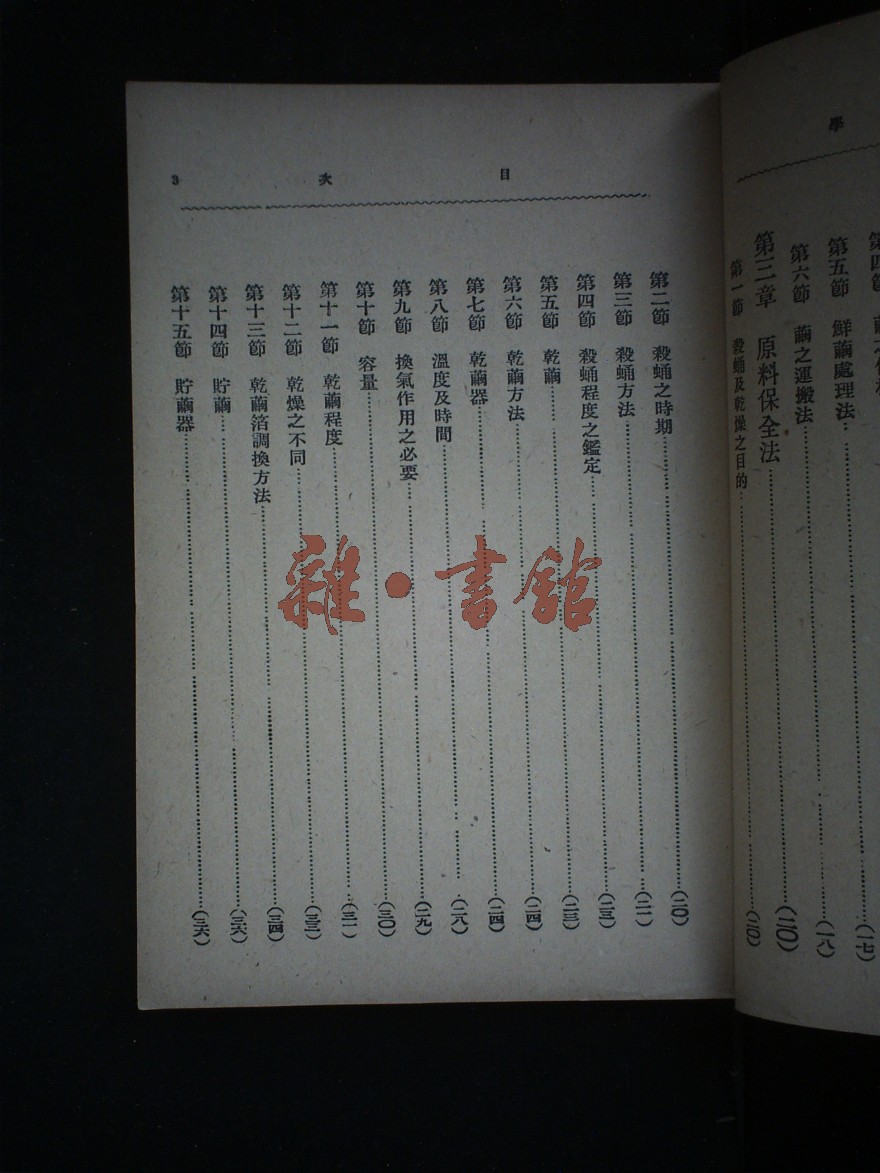 學
第五節　鮮繭處理法……(一七)
第六節　繭之運搬法……(一八)
第三章　原料保全法……(二〇)
第一節　殺蛹及乾燥之目的……(二〇)
目　次　3
第二節　殺蛹之時期……(二〇)
第三節　殺蛹方法……(二一)
第四節　殺蛹程度之鑑定……(二三)
第五節　乾繭……(二三)
第六節　乾繭方法……(二四)
第七節　乾繭器……(二四)
第八節　溫度及時間……(二八)
第九節　換氣作用之必要……(二九)
第十節　容量……(三〇)
第十一節　乾繭程度……(三一)
第十二節　乾燥之不同……(三三)
第十三節　乾繭箔調換方法……(三四)
第十四節　貯繭……(三六)
第十五節　貯繭器……(三六)
雜·書館